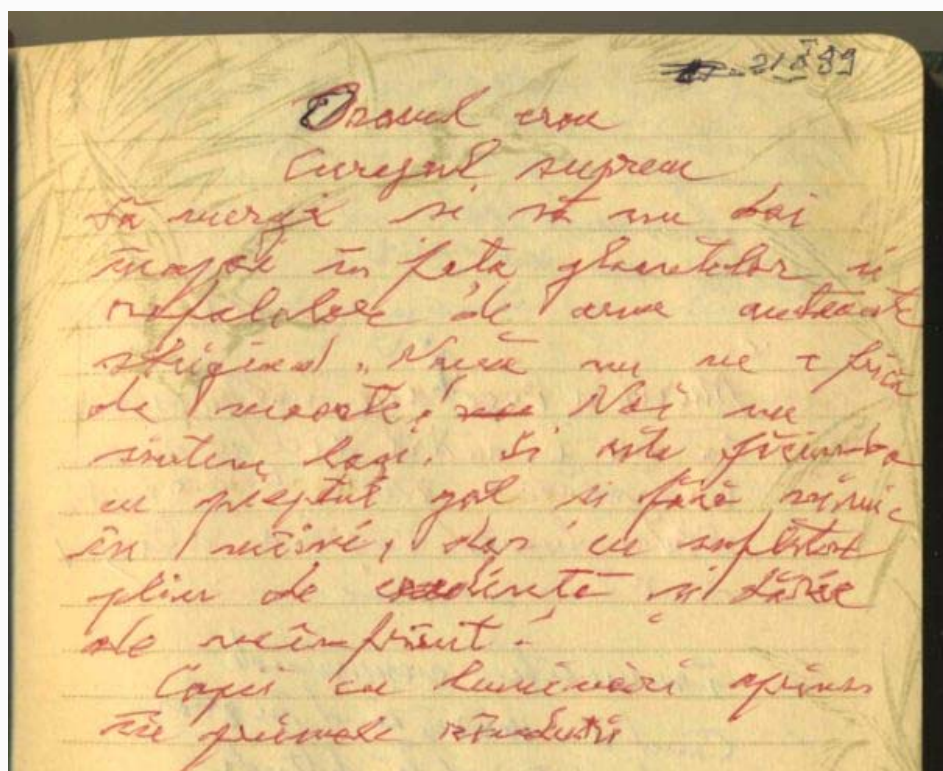 21 X 89
Orașul erou
Curajul suprem
să mergi și să nu dai
înapoi în fața gloanțelor și
rafalelor de arme automate
strigînd „Nouă nu ne e frică
de moarte! Noi nu
sîntem lași. Și asta făcîndu-
cu pieptul gol și fără nimic
în mîini, dar cu sufletul
plin de credință și tărie
de neînfrînt!
Copii cu lumînări aprinse
în primele rînduri